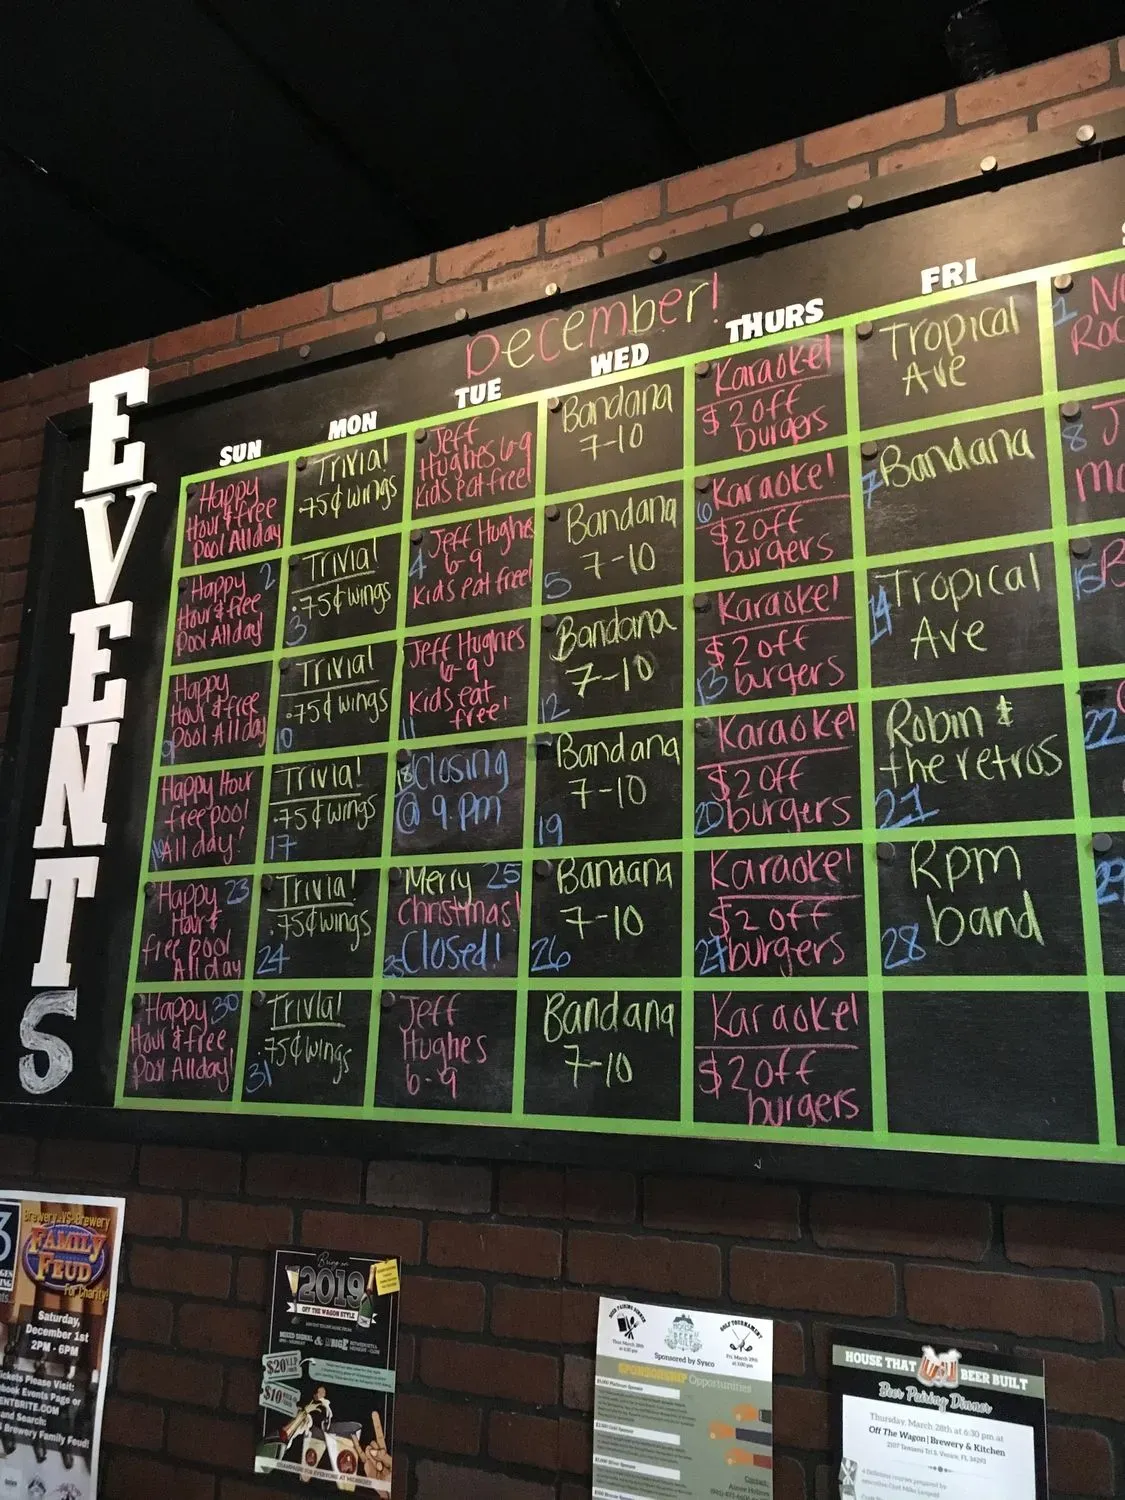 EVENTS
December!
SUN
MON
TUE
WED
THURS
FRI
Happy
Hour & free
Pool All day
Trivia!
.75¢ wings
Jeff
Hughes 6-9
Kids eat free!
Bandana
7-10
Karaoke!
$2 off
burgers
Tropical
Ave
1
2
Happy
Hour & free
Pool All day!
3
Trivia!
.75¢ wings
4
Jeff Hughes
6-9
Kids eat free!
5
Bandana
7-10
6
Karaoke!
$2 off
burgers
7
Bandana
8
9
Happy
Hour & free
Pool All day
10
Trivia!
.75¢ wings
11
Jeff Hughes
6-9
Kids eat
free!
12
Bandana
7-10
13
Karaoke!
$2 off
burgers
14
Tropical
Ave
15
16
Happy Hour
free pool
All day!
17
Trivia!
.75¢ wings
18
Closing
@ 9 pm
19
Bandana
7-10
20
Karaoke!
$2 off
burgers
21
Robin &
the retros
22
23
Happy
Hour &
free pool
All day
24
Trivia!
.75¢ wings
Merry 25
Christmas!
25 Closed!
26
Bandana
7-10
27
Karaoke!
$2 off
burgers
28
Rpm
band
29
30
Happy
Hour & free
Pool All day!
31
Trivia!
.75¢ wings
Jeff
Hughes
6-9
Bandana
7-10
Karaoke!
$2 off
burgers
Brewery VS. Brewery
FAMILY
FEUD
For Charity!
Saturday,
December 1st
2PM - 6PM
Please Visit:
Events Page or
and Search:
Brewery Family Feud!
Bring in
2019
OFF THE WAGON STYLE
$20
$10
CHAMPAGNE FOR EVERYONE AT MIDNIGHT
BEER PAIRING DINNER
Thur. March 28th
at 6:30 pm
GOLF TOURNAMENT
Fri. March 29th
Sponsored by Sysco
SPONSORSHIP Opportunities
Contact:
HOUSE THAT BEER BUILT
Beer Pairing Dinner
Thursday, March 28th at 6:30 pm at
Off The Wagon | Brewery & Kitchen
2107 Tamiami Tr S. Venice, FL 34293